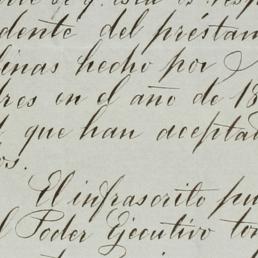 dente del préstam
linas hecho por
res en el año de 18
que han aceptad
os.
El infrascrito pu
l Poder Ejecutivo ton